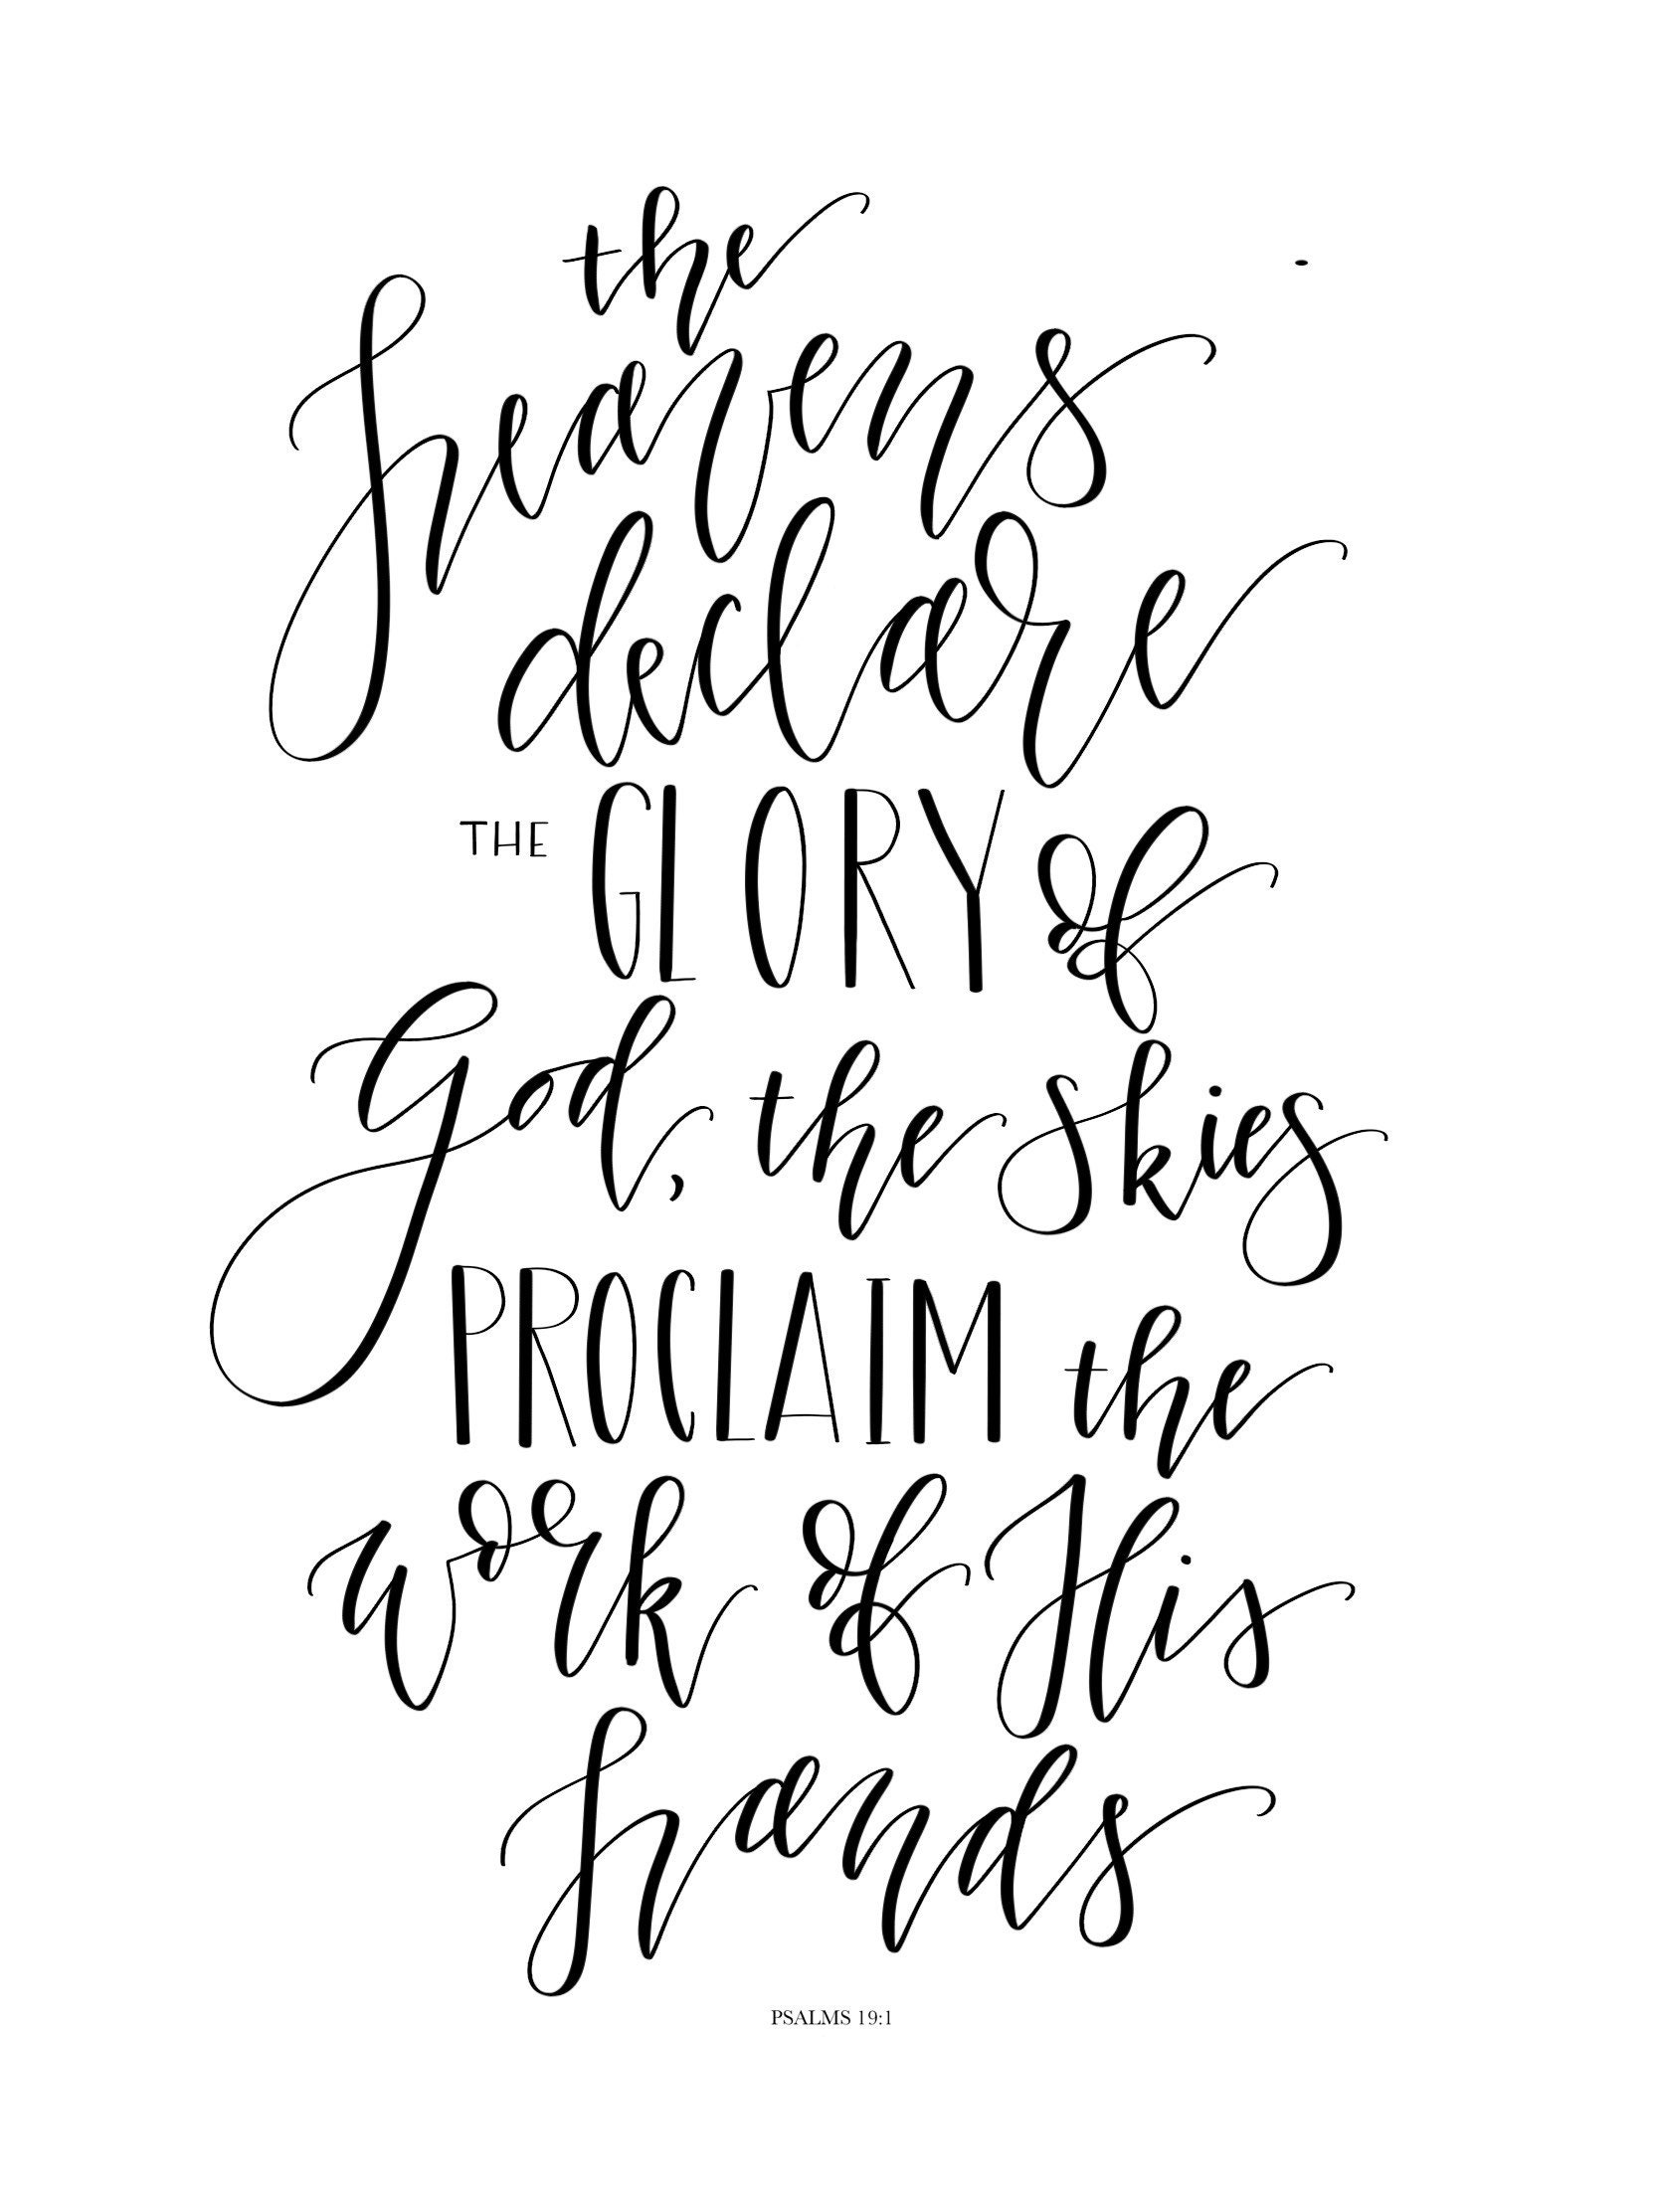 the
heavens
declare
THE GLORY of
God, the skies
PROCLAIM the
work of His
hands
PSALMS 19:1